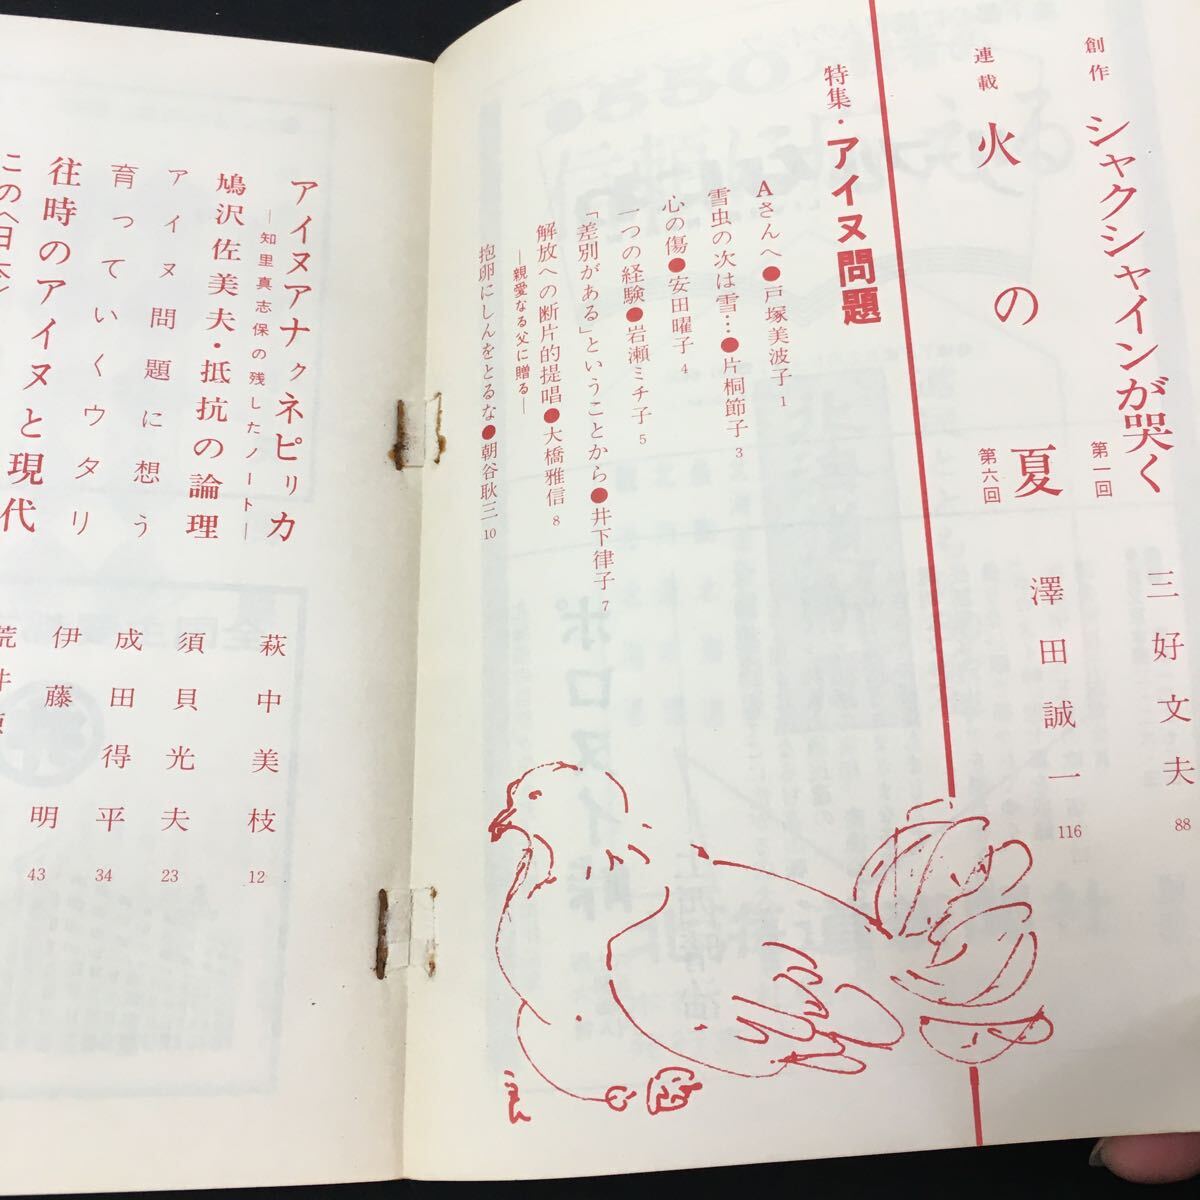 創作 シャクシャインが哭く 第一回 三好文夫 88
連載 火の夏 第六回 澤田誠一 116
特集・アイヌ問題
Aさんへ●戸塚美波子 1
雪虫の次は雪…●片桐節子 3
心の傷●安田曜子 4
一つの経験●岩瀬ミチ子 5
「差別がある」ということから●井下律子 7
解放への断片的提唱●大橋雅信 8
―親愛なる父に贈る―
抱卵にしんをとるな●朝谷耿三 10
アイヌアナクネピリカ 萩中美枝 12
―知里真志保の残したノート―
鳩沢佐美夫・抵抗の論理 須貝光夫 23
アイヌ問題に想う 成田得平 34
育っていくウタリ 伊藤明 43
往時のアイヌと現代 荒井源
この〈日本